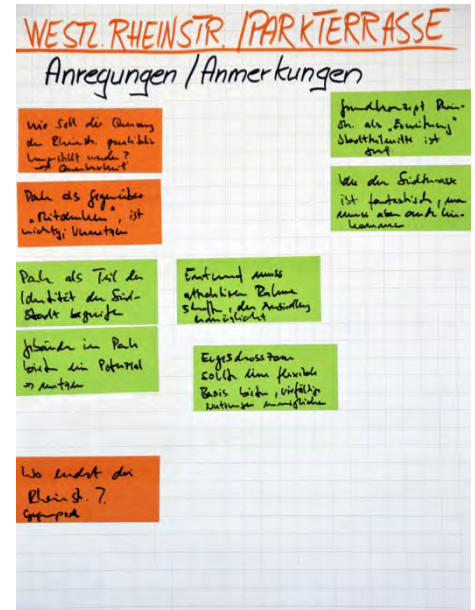 WESTL. RHEINSTR. / PARKTERRASSE
Anregungen / Anmerkungen
Wie soll die Querung
der Rheinstr. qualitativ
hergestellt werden?
Park als Gegenüber
"Mitdenken", ist
wichtig; Vernetzen
Park als Teil der
Identität der Süd-
Stadt begreifen
Gebäude im Park
bieten ein Potential
⇒ nutzen
Wo endet die
Rheinstr.?
Entwurf muss
attraktiven Rahmen
schaffen, der Ansiedlung
ermöglicht
Erdgeschosszone
sollte eine flexible
Basis bieten, vielfältige
Nutzungen ermöglichen
Grundkonzept Rhein-
str. als "Erweiterung"
Stadtteilmitte ist
gut
Idee der Südterrasse
ist fantastisch, man
muss aber auch hin-
kommen